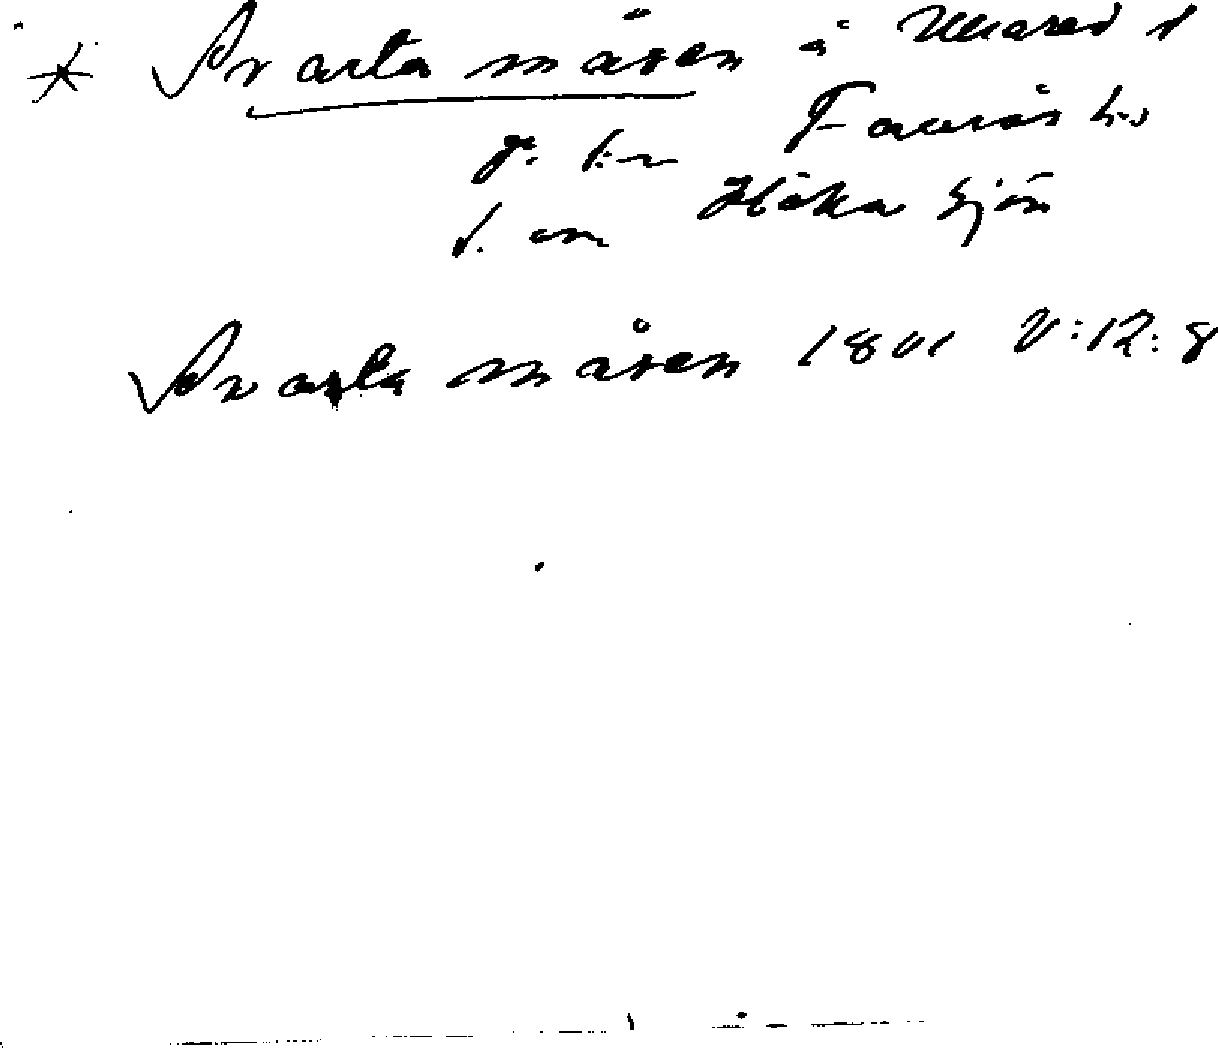 * Svarta måsen å Ullared s
Faurås hd
s. om Höka sjön
Svarta måsen 1801 V:12:8